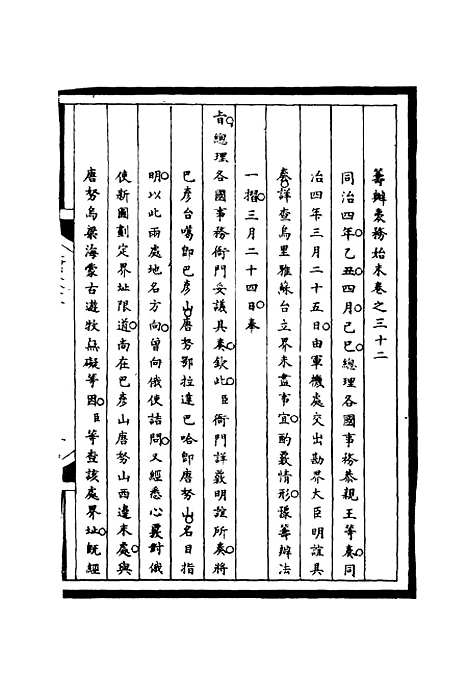 籌辦夷務始末卷之三十二
同治四年乙丑四月己巳總理各國事務恭親王等奏同
治四年三月二十五日由軍機處交出勘界大臣明誼具
奏詳查烏里雅蘇台立界未盡事宜酌覈情形豫籌辦法
一摺三月二十四日奉
旨總理各國事務衙門妥議具奏欽此臣衙門詳覈明誼所奏將
巴彥台噶卽巴彥山唐努鄂拉達巴哈卽唐努山名目指
明以此兩處地名方向曾向俄使詰問又經悉心覈對俄
使新圖劃定界址限道尚在巴彥山唐努山西邊末處與
唐努烏梁海蒙古遊牧無礙等因臣等查該處界址旣經